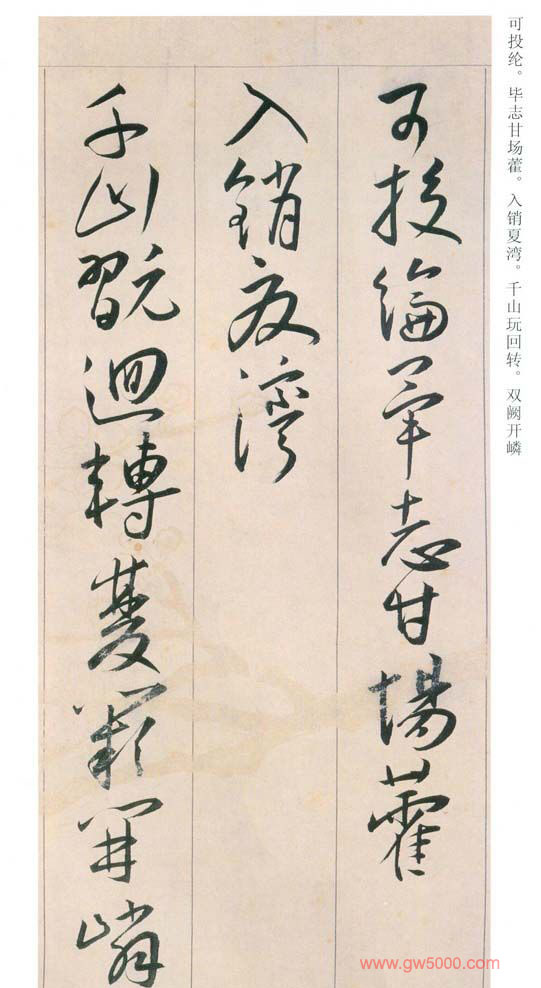 可投纶。毕志甘场藿。入销夏湾。千山玩回转。双阙开嶙
可投綸畢志甘場藿
入銷夏灣
千山翫迴轉雙闕開嶙
www.gw5000.com